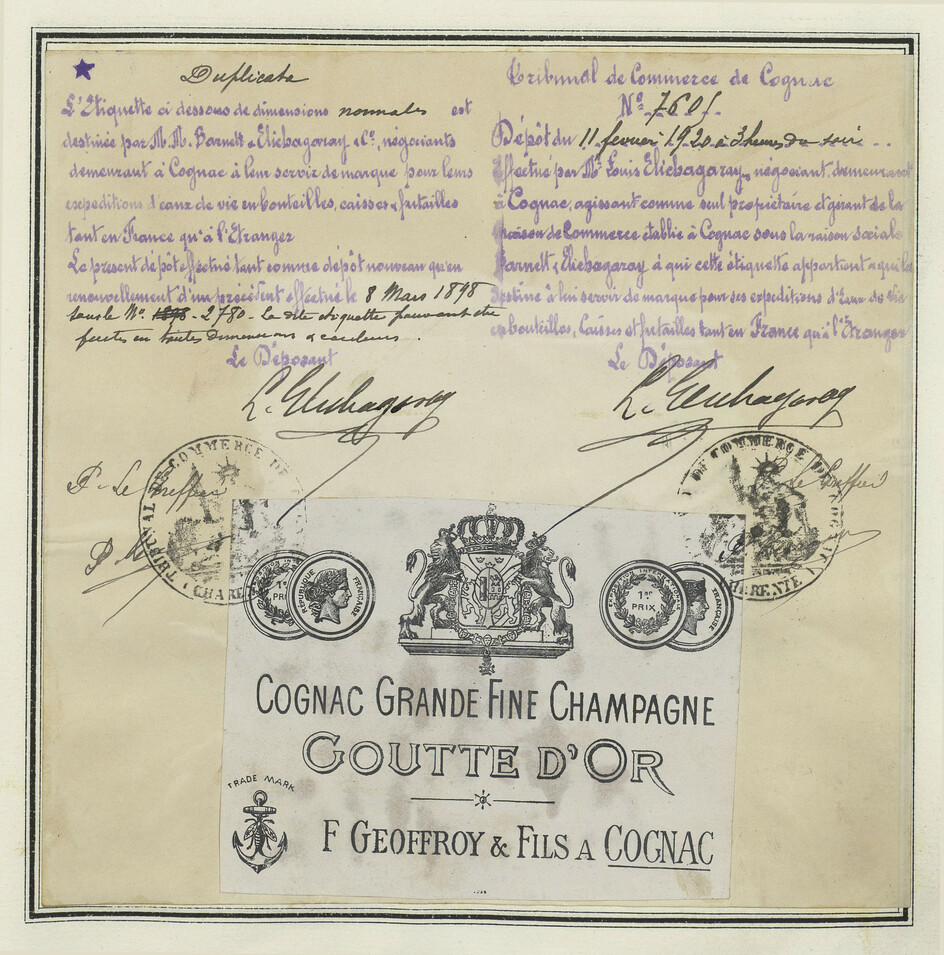 Duplicata
L'Etiquette ci dessous de dimensions normales est
destinée par M.M. Barnett & Elichagaray & Cº, négociants
demeurant à Cognac à leur servir de marque pour leurs
expeditions d'eaux de vie en bouteilles, caisses & futailles
tant en France qu'à l'Etranger
Le present dépôt effectué tant comme dépôt nouveau qu'en
renouvellement d'un précédent effectué le 8 Mars 1898
sous le Nº 2780 - La dite étiquette pouvant être
faites en toutes dimensions & couleurs.
Le Déposant
L. Elichagaray
Tribunal de Commerce de Cognac
Nº 7601
Dépôt du 11 fevrier 1920 à 3 heures du soir
Effectué par Mr Louis Elichagaray, négociant, demeurant
à Cognac, agissant comme seul propriétaire et gérant de la
Maison de Commerce établie à Cognac sous la raison sociale
Barnett & Elichagaray à qui cette étiquette appartient & qui la
destine à lui servir de marque pour ses expeditions d'Eaux de Vie
en bouteilles, Caisses et futailles tant en France qu'à l'Etranger
Le Déposant
L. Elichagaray
P. Le Greffier
TRIBUNAL DE COMMERCE DE
CHARENTE
Le Greffier
DE COMMERCE DE COGNAC
CHARENTE
1er
PRIX
RÉPUBLIQUE FRANÇAISE
EXPOSITION INTERNATIONALE
1er
PRIX
FRANÇAISE
COGNAC GRANDE FINE CHAMPAGNE
GOUTTE D'OR
TRADE MARK
F GEOFFROY & FILS A COGNAC